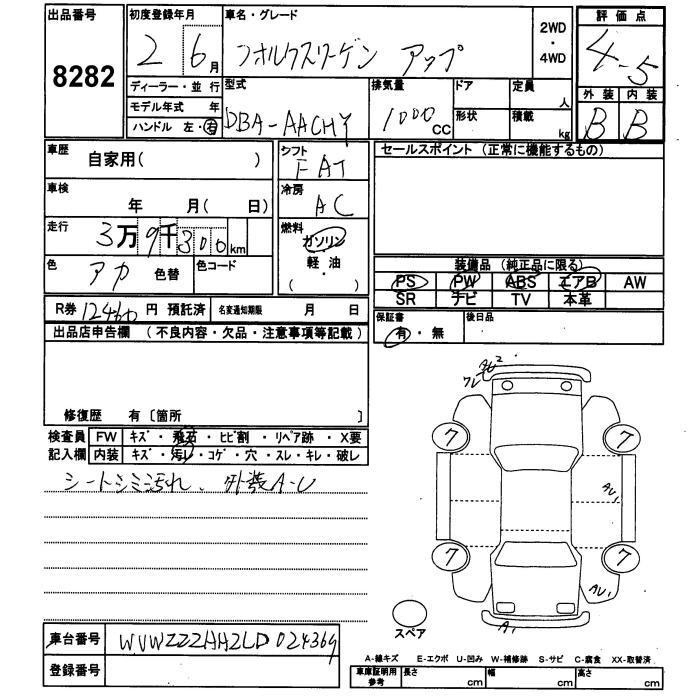 出品番号 初度登録年月 車名・グレード 評価点
8282 2 6月 フォルクスワーゲン アップ 2WD・4WD 4.5
ディーラー・並行 型式 排気量 ドア 定員 人 外装 内装
モデル年式 年 DBA-AACHY 1000cc 形状 積載 kg B B
ハンドル 左・右
車歴 自家用( ) シフト FAT セールスポイント (正常に機能するもの)
車検 年 月( 日) 冷房 AC
走行 3万9千300km 燃料 ガソリン
軽・油
( ・ )
色 アカ 色替 色コード
装備品 (純正品に限る)
PS PW ABS エアB AW
SR ナビ TV 本革
R券 12460円 預託済 名変通知期限 月 日
保証書 有・無 後日品
出品店申告欄 (不良内容・欠品・注意事項等記載)
修復歴 有〔箇所 〕
検査員 FW キズ・飛石・ヒビ割・リペア跡・X要
記入欄 内装 キズ・汚レ・コゲ・穴・スレ・キレ・破レ
シートシミ汚れ、外装A-U
ワレ
7 7
AU1
7 7
AU1
A1
スペア
車台番号 WVWZZZAAZLD024369
登録番号
A-線キズ E-エクボ U-凹み W-補修跡 S-サビ C-腐食 XX-取替済
車庫証明用参考 長さ cm 幅 cm 高さ cm